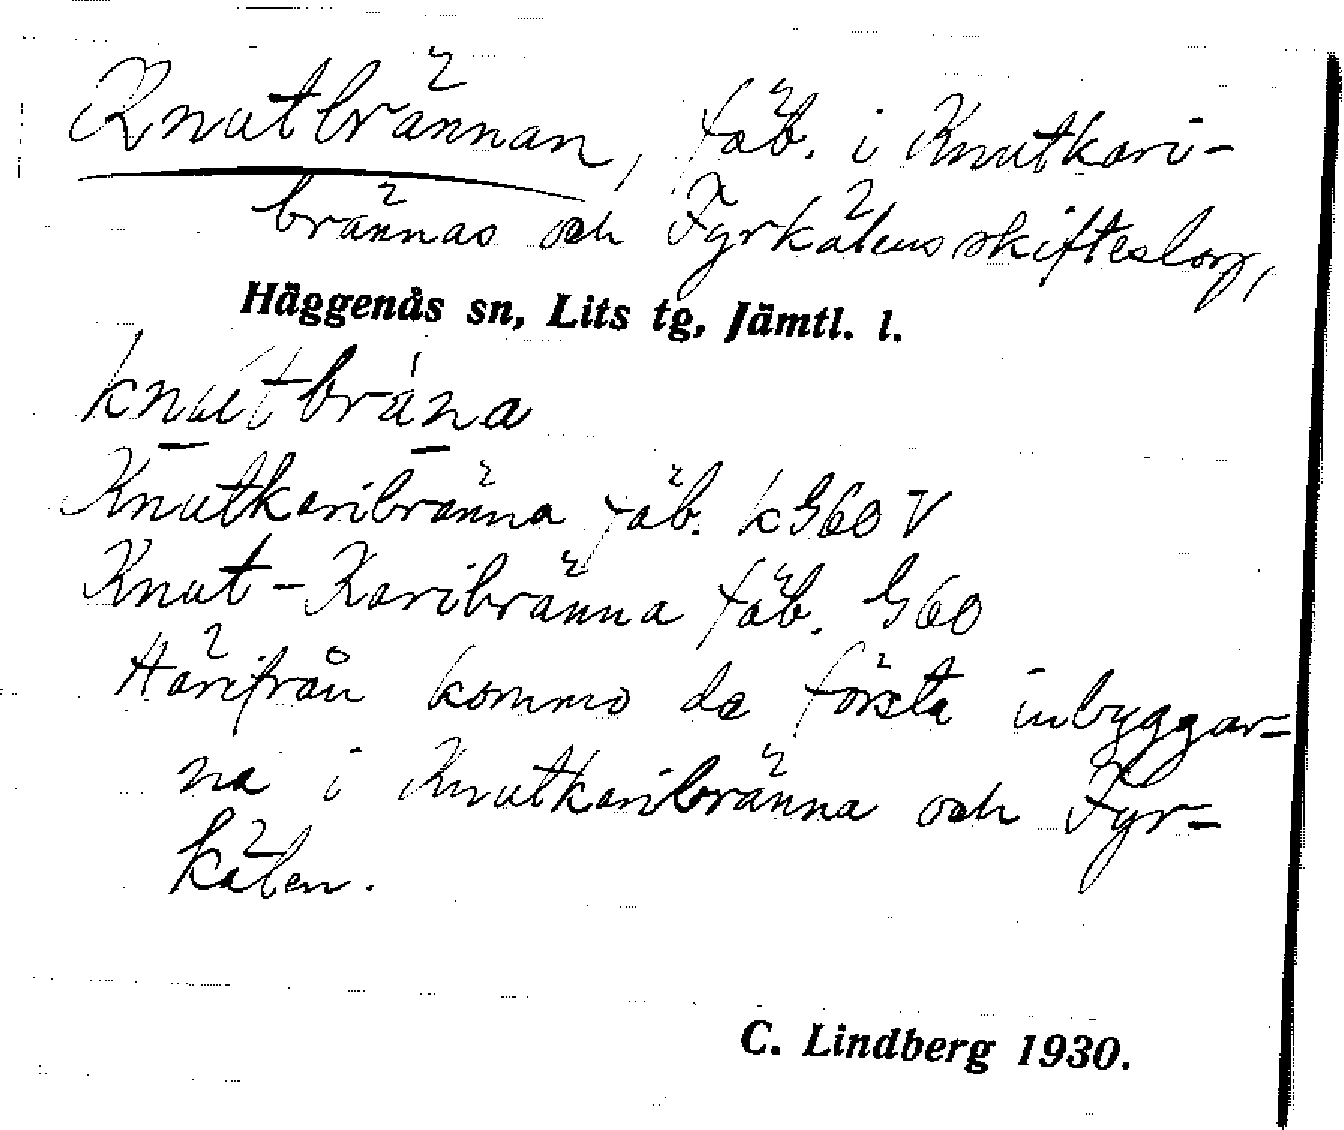 Knutbrännan, fäb. i Knutkari-
brännas och Fyrkälens skifteslag,
Häggenås sn, Lits tg, Jämtl. l.
knutbräna
Knutkaribränna fäb. kG60V
Knut-Karibränna fäb. G60
Härifrån kommo de första inbyggar=
na i Knutkaribränna och Fyr=
kälen.
C. Lindberg 1930.